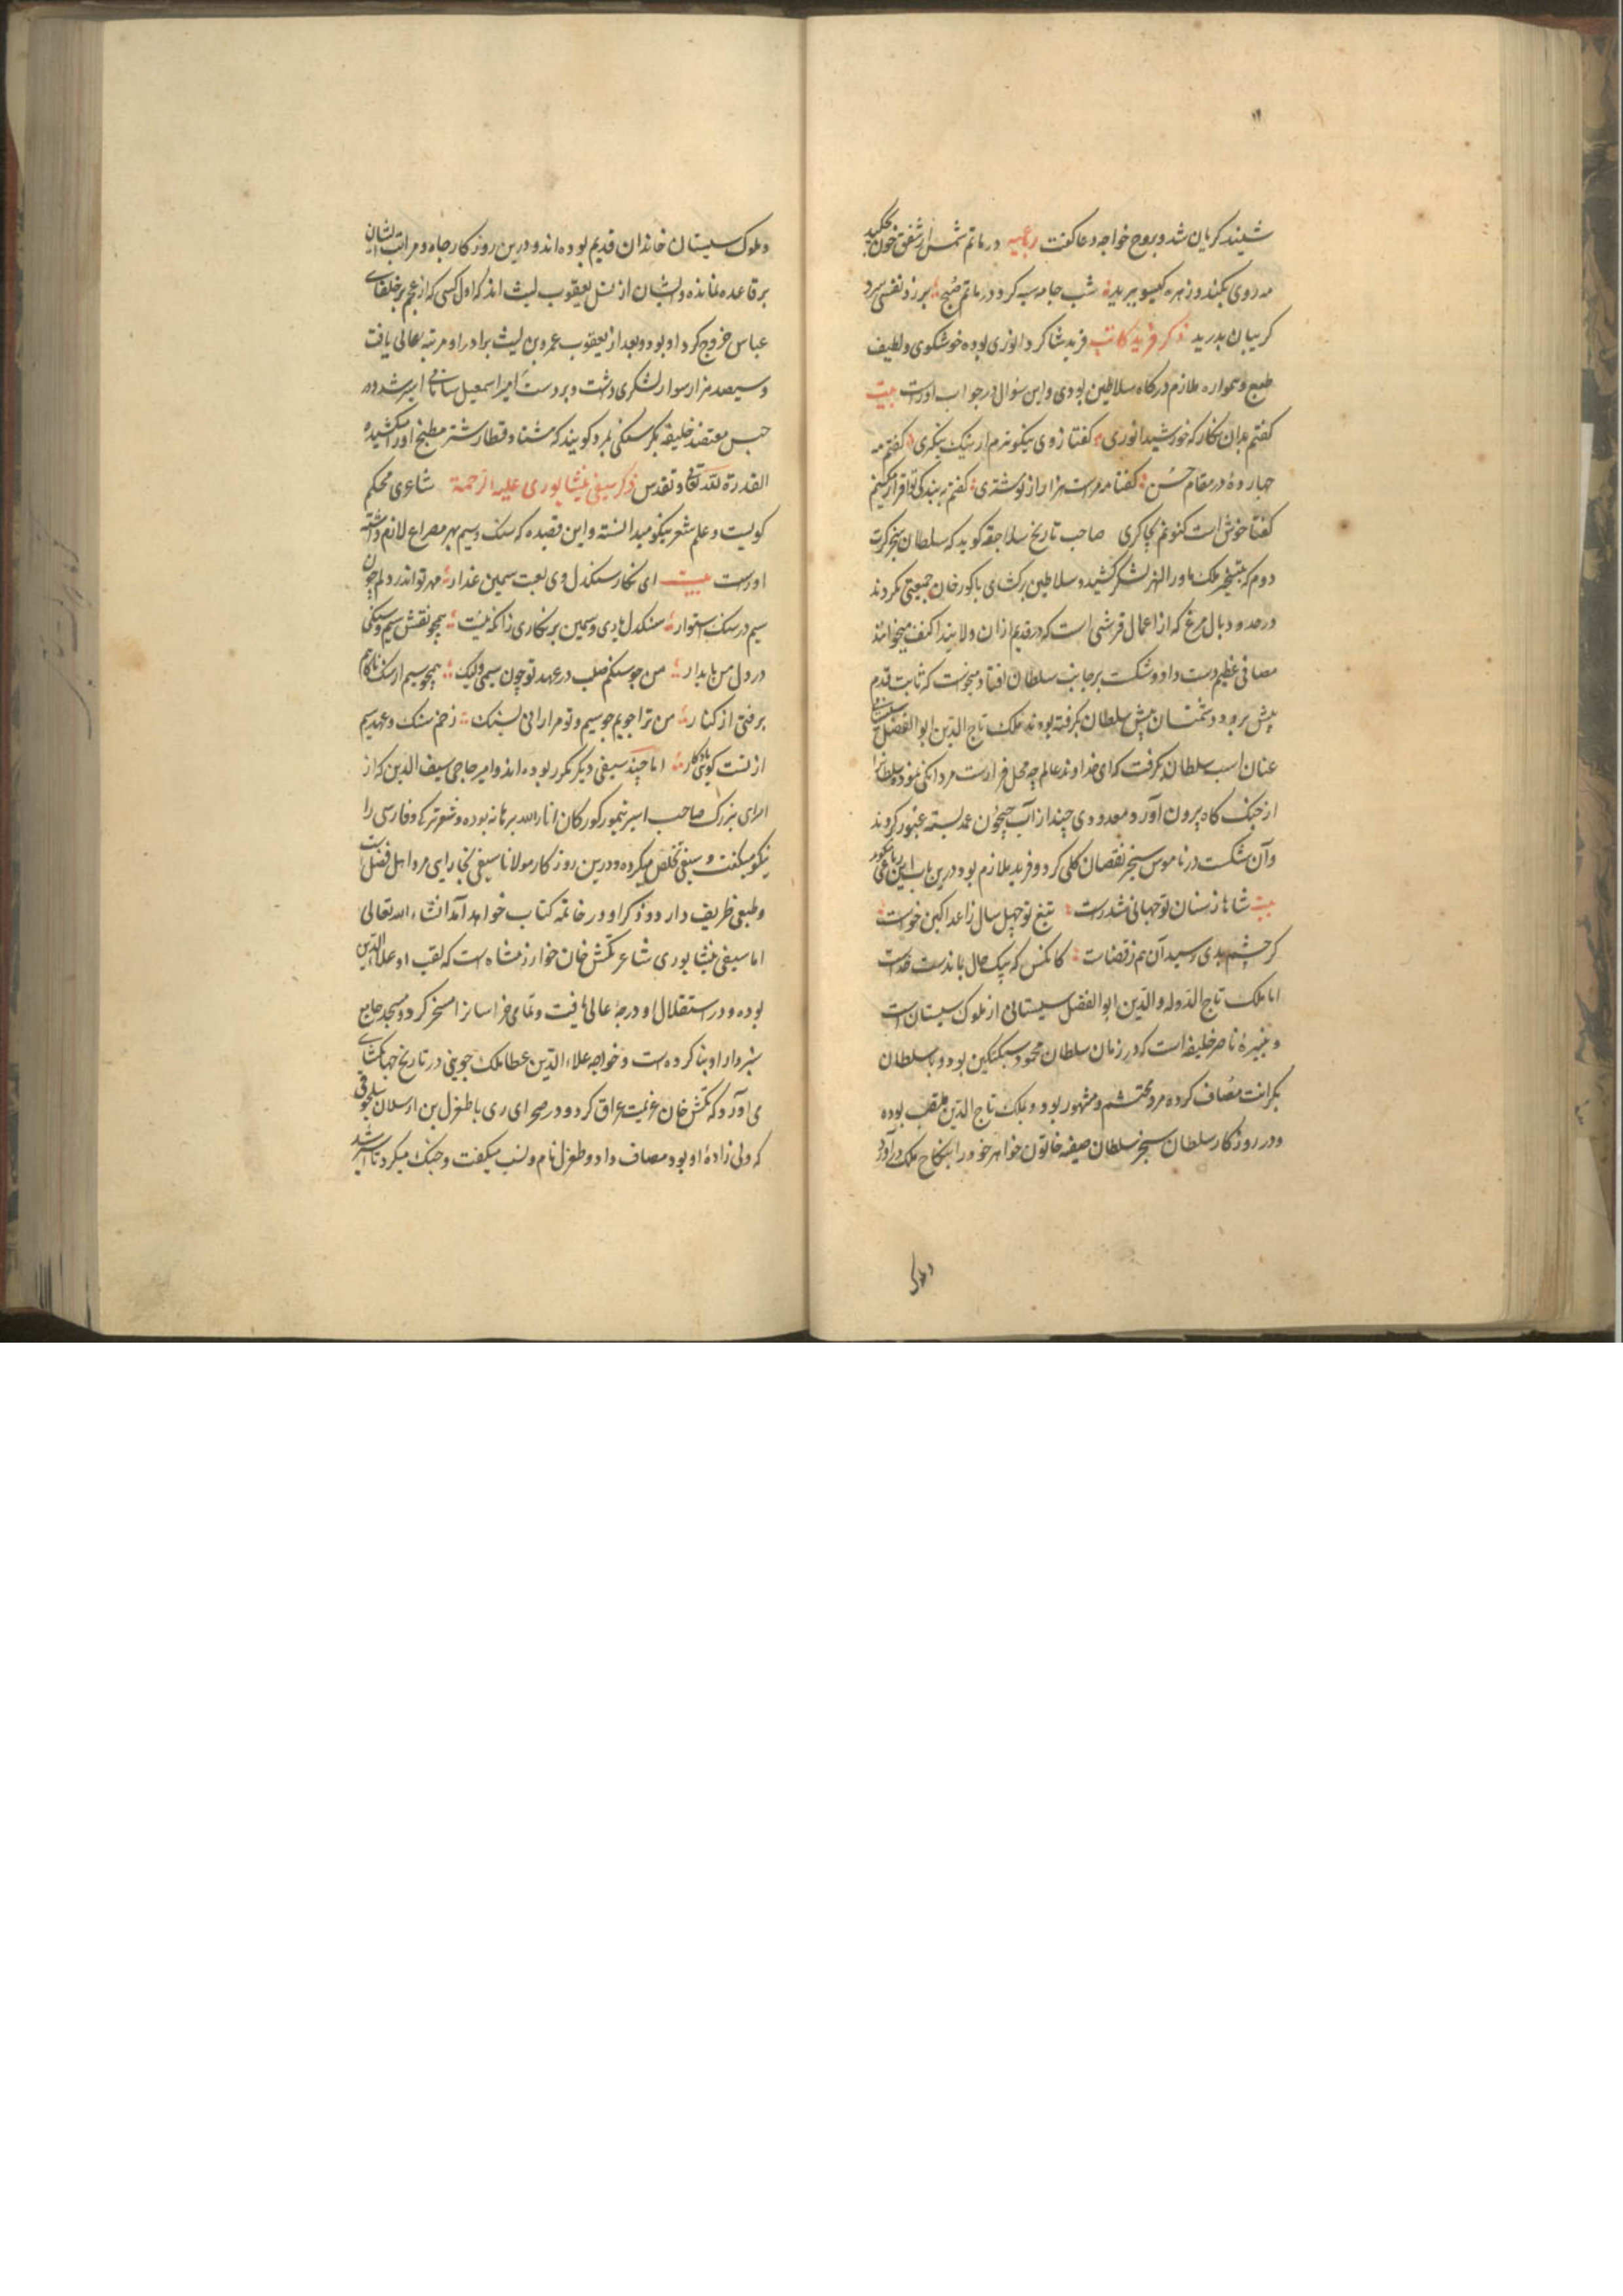 شنیند کریان شد و بروح خواجه دعا کفت رباعیه در ماتم شمس از شفق خون بچکید
مه روی بکند و زهره کیسو ببرید شب جامه سیه کرد در ماتم صبح برزد نفس سرد
کریبان بدرید ذکر فرید کاتب فرید شاکرد انوری بوده خوشکوی و لطیف
طبع و همواره ملازم درکاه سلاطین بودی و این سؤال و جواب اوراست بیت
کفتم بدان نکار که خورشید انوری کفتا ز وی نیکوترم ار نیک بنکری کفتم مه
چهارده در مقام حسن کفتا مرمراست هزار از تو مشتری کفتم به بندکی تو اقرار میکنم
کفتا خوش است کنونم بچاکری صاحب تاریخ سلاجقه کوید که سلطان سنجر کرت
دوم که بتسخیر ملک ماورالنهر لشکر کشید و سلاطین ترکستان با کورخان جمعیتی کردند
در حدود بال مرغ که از اعمال قرشی است که در قدیم ازان ولایت میخوانند
مصافی عظیم دست داد و شکست بر جانب سلطان افتاد میخواست که ثابت قدم
پیش برود دشمنان پیش سلطان بکرفته بودند ملک تاج الدین ابوالفضل سیستانی
عنان اسب سلطان بکرفت که ای خداوند عالم چه محل قرارست مردانکی نموده سلطانرا
از جنک کاه بیرون آورد و معدودی چند از آب جیحون عمد بسته عبور کردند
و آن شکست در ناموس سنجر نقصان کلی کرد و فرید ملازم بود درین باب این رباعی میکوید
بیت شاها ز سنان تو جهانی شد راست تیغ تو چهل سال ز اعدا کین خواست
کر چشم بدی رسید آن هم ز قضاست کانکس که بیک حال بماندست خداست
اما ملک تاج الدوله والدین ابوالفضل سیستانی از ملوک سیستان است
و نبیرهٔ ناصر خلیفه است که در زمان سلطان محمود سبکتکین بود و با سلطان
بکرات مصاف کرده مرد محتشم و مشهور بود و ملک تاج الدین ملقب بوده
و در روزکار سلطان سنجر سلطان صیفه خاتون خواهر خود را بنکاح ملک درآورد
و ملوک
و ملوک سیستان خاندان قدیم بوده اند و درین روزکار جاه و مراتب ایشان
بر قاعده نمانده و ایشان از نسل یعقوب لیث اند که اول کسی که از عجم بر خلفای
عباس خروج کرد او بود و بعد از یعقوب عمرو بن لیث برادر او مرتبه عالی یافت
و سیصد هزار سوار لشکری داشت و بر دست امیر اسمعیل سامانی اسیر شد و در
حبس معتضد خلیفه بکرسنکی بمرد کویند که هشتاد قطار شتر مطبخ او را میکشیده
القدرة لله تعالی و تقدس ذکر سیفی نیشابوری علیه الرحمة شاعری محکم
کویست و علم شعر نیکو میدانسته و این قصیده که سنک و سیم بهر مصراع لازم داشته
اوراست بیت ای نکار سنکدل وی لعبت سیمین عذار مهر تو اندر دلم چون
سیم در سنک استوار سنکدل یاری و سیمین بر نکاری زانکه هست همچو نقش سیم و سنکی
در دل من پایدار من چو سنکم صلب در عهد تو چون سیمی ولیک همچو سیم از سنک ناکام
برفتی از کنار من ترا جویم چو سیم و تو مرا رانی بسنک زخم سنک و عهد سیم
از تست کوئی یادکار اما چند سیفی دیکر مکرر بوده اند و امیر حاجی سیف الدین که از
امرای بزرک صاحب امیر تیمور کورکان انار الله برهانه بوده و شعر ترکی و فارسی را
نیکو میکفت و سیفی تخلص میکرده و درین روزکار مولانا سیفی بخارایی مرد اهل فضل است
و طبعی ظریف دارد و ذکر او در خاتمه کتاب خواهد آمد انشاء الله تعالی
اما سیفی نیشابوری شاعر تکش خان خوارزمشاه است که لقب او علاءالدین
بوده و در استقلال او درجهٔ عالی یافت و تمامی خراسانرا مسخر کرد و مسجد جامع
سبزوار او بنا کرده است و خواجه علاء الدین عطا ملک جوینی در تاریخ جهانکشای
می آورد که تکش خان عزیمت عراق کرد و در صحرای ری با طغرل بن ارسلان سلجوقی
که ولی زادهٔ او بود مصاف داد و طغرل نام و نسب میکفت و جنک میکرد تا اسیر شد